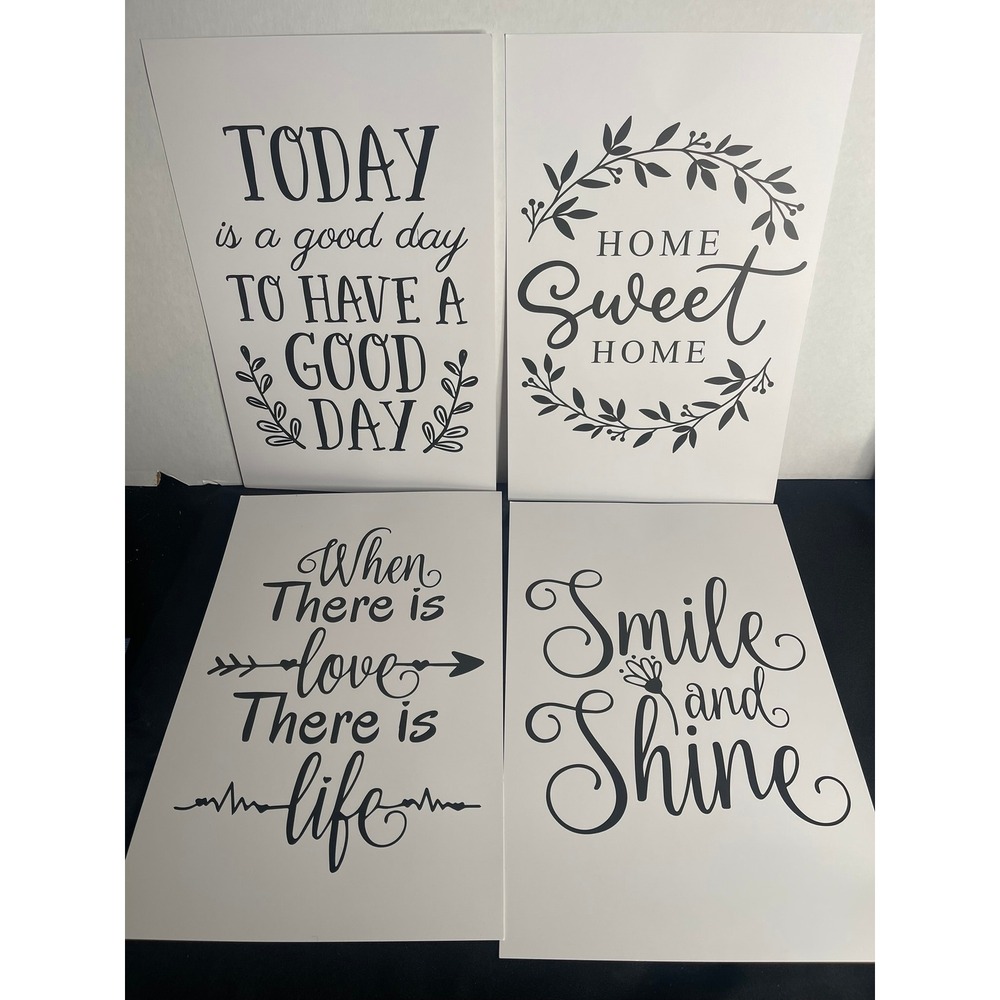 TODAY
is a good day
TO HAVE A
GOOD
DAY
HOME
Sweet
HOME
When
There is
love
There is
life
Smile
and
Shine